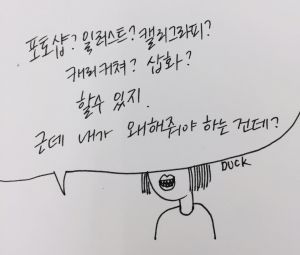 포토샵? 일러스트? 캘리그라피?
캐리커쳐? 삽화?
할수 있지.
근데 내가 왜해줘야 하는 건데?
DUCK